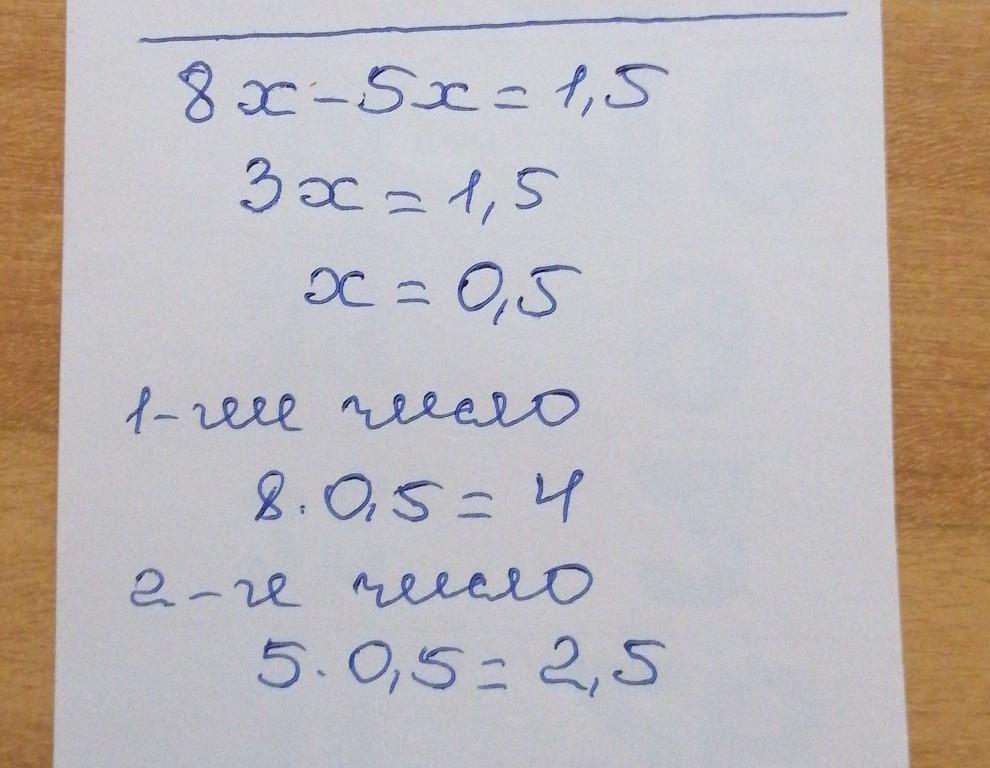 8x - 5x = 1,5
3x = 1,5
x = 0,5
1-чи число
8 · 0,5 = 4
2-чи число
5 · 0,5 = 2,5